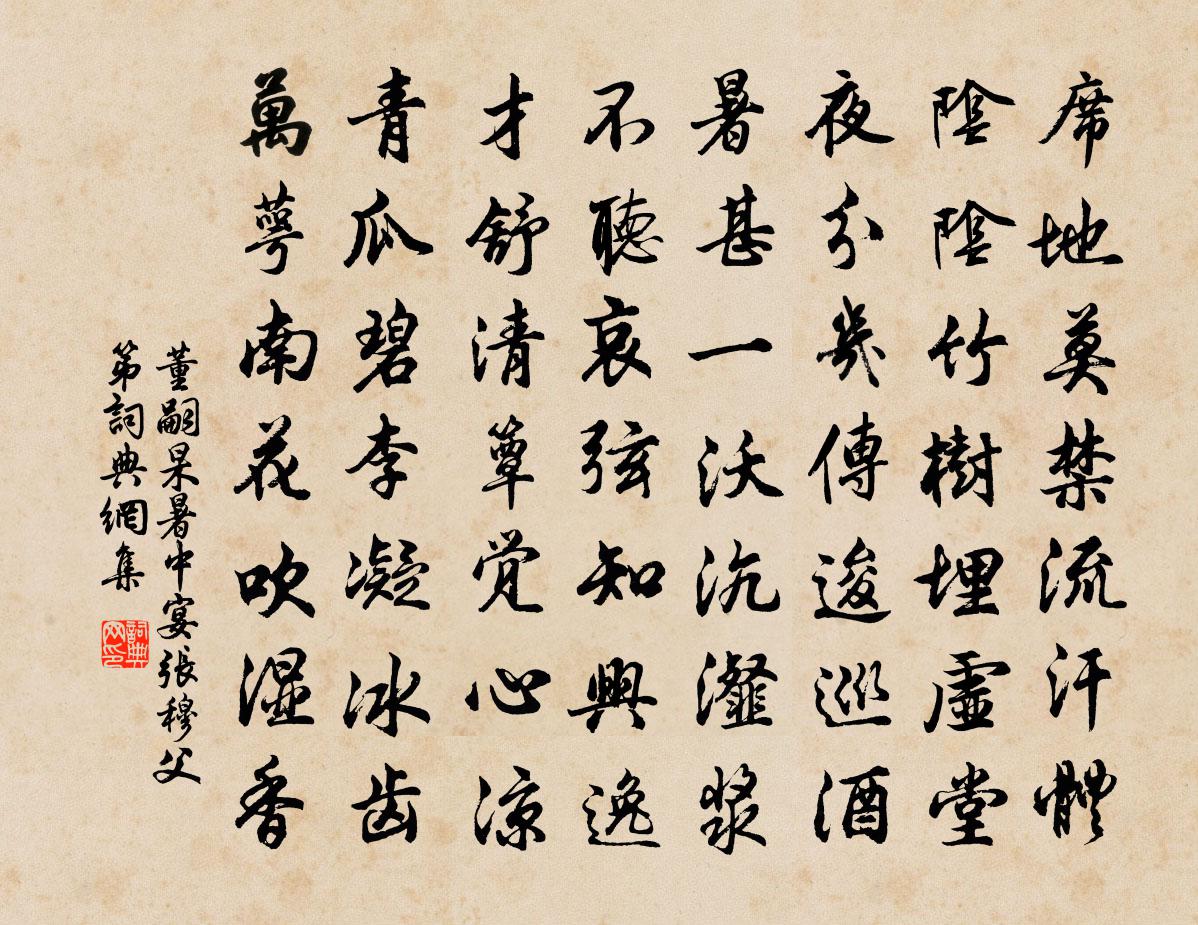 席地莫禁流汗體
陰陰竹樹埋虛堂
夜分幾傳逡巡酒
暑甚一沃沆瀣漿
不聽哀弦知興逸
才舒清簟覺心涼
青瓜碧李凝冰齒
萬萼南花吹濕香
董嗣杲暑中宴張穆父
第詞典網集
詞典网印